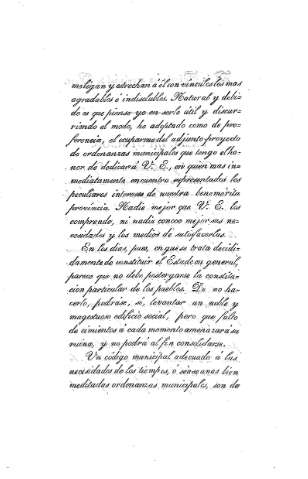 me ligan y estrechan á él con vínculos los mas
agradables ó indisolubles. Natural y debi-
do es que piense yo en serle útil y discur-
riendo el modo, he adoptado como de pre-
ferencia, el ocuparme del adjunto proyecto
de ordenanzas municipales que tengo el ho-
nor de dedicar á V. E., en quien mas in-
mediatamente encuentro representados los
peculiares intereses de nuestra benemérita
provincia. Nadie mejor que V. E. los
comprende, ni nadie conoce mejor sus ne-
cesidades y los medios de satisfacerlas.
En los dias, pues, en que se trata decidi-
damente de constituir el Estado en general,
parece que no debe postergarse la constitu-
cion particular de los pueblos. De no ha-
cerlo, podráse, sí, levantar un noble y
magestuoso edificio social, pero que falto
de cimientos á cada momento amenazará su
ruina, y no podrá al fin consolidarse.
Un código municipal adecuado á las
necesidades de los tiempos, ó séanse unas bien
meditadas ordenanzas municipales, son de